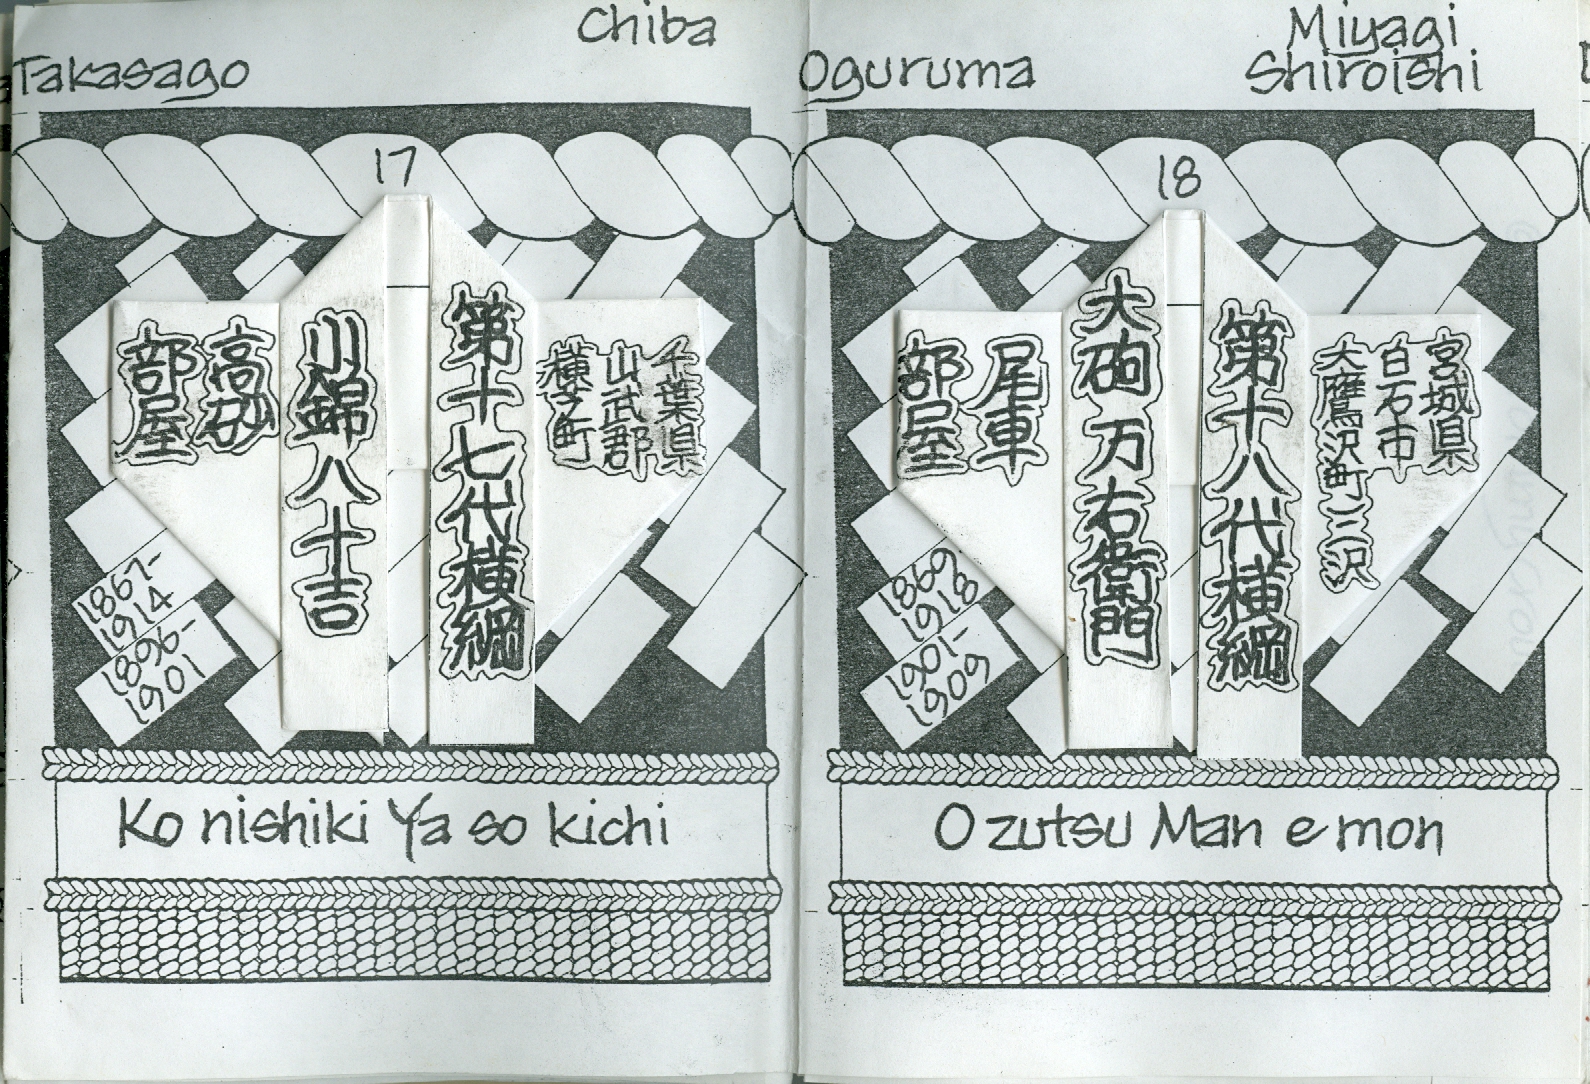 Chiba
Takasago
17
千葉県
山武郡
横芝町
第十七代横綱
小錦八十吉
高砂
部屋
1867-
1914
1896-
1901
Ko nishiki Ya so kichi
Miyagi
Oguruma
Shiroishi
18
宮城県
白石市
大鷹沢町三沢
第十八代横綱
大砲万右衛門
尾車
部屋
1869
1918
1901-
1909
O zutsu Man e mon